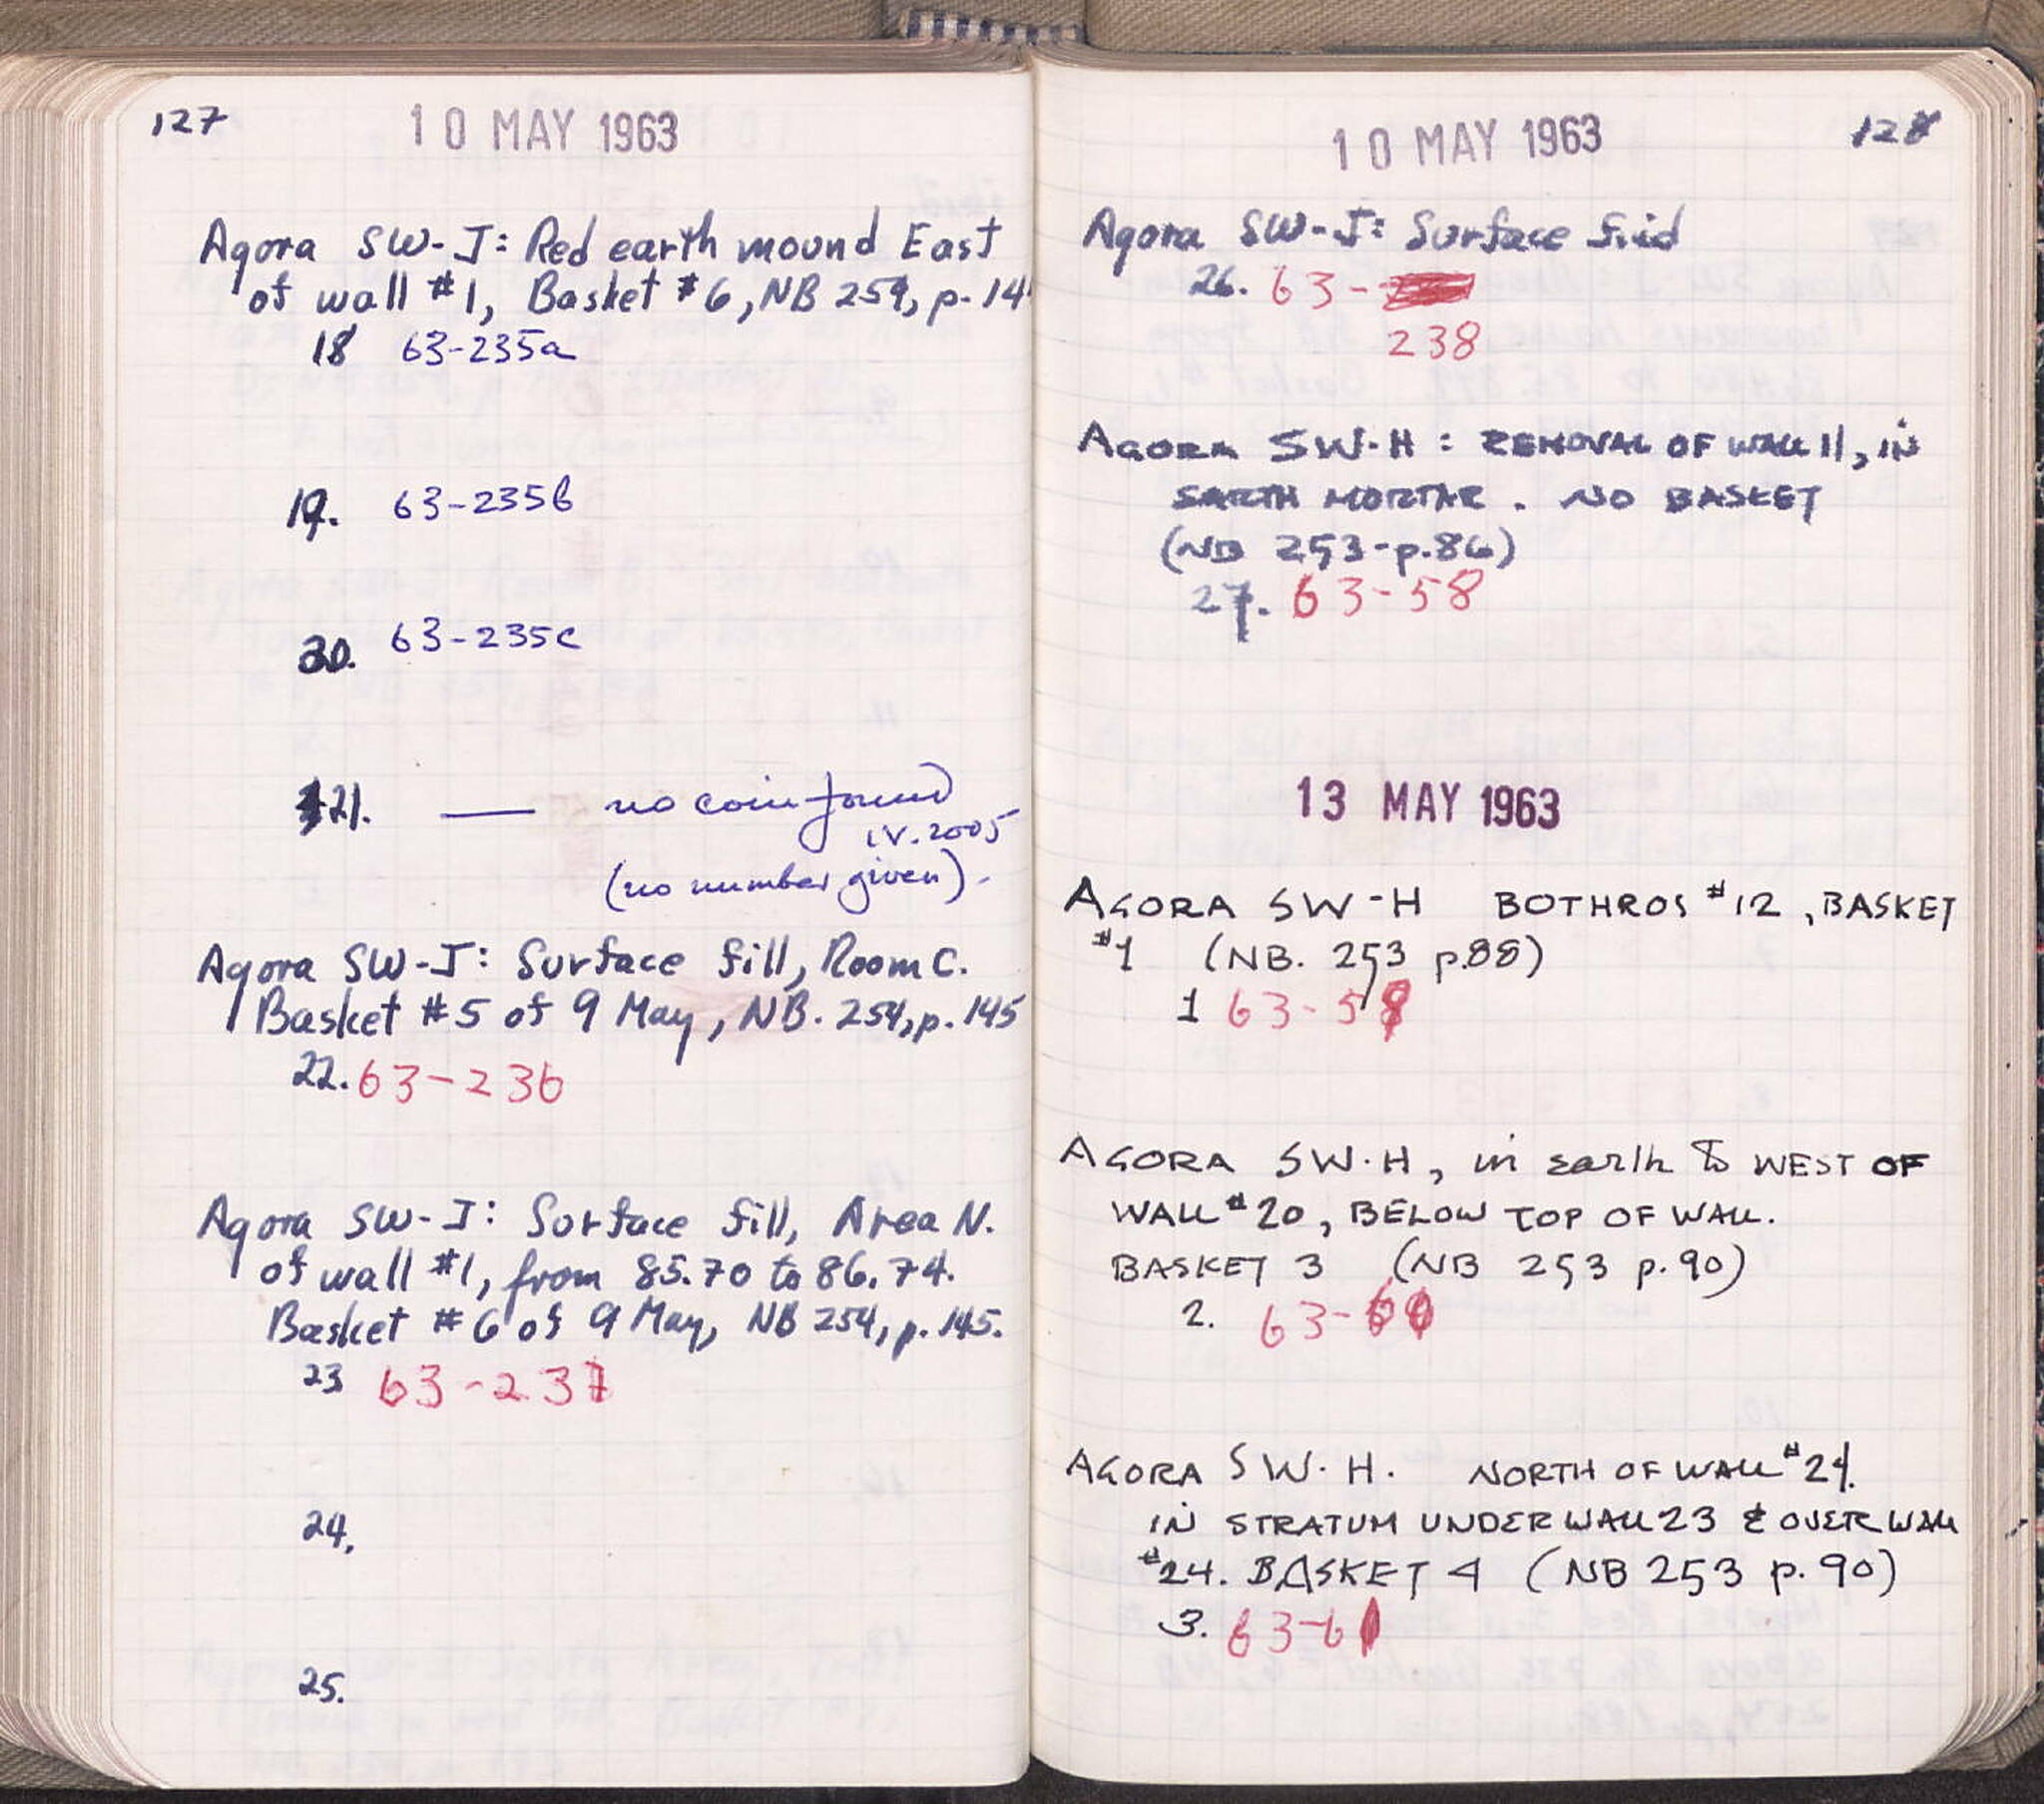 127
10 MAY 1963
Agora SW-J: Red earth mound East
of wall #1, Basket #6, NB 254, p. 14
18 63-235a
19. 63-235b
20. 63-235c
21. — no coin found
IV.2005
(no number given).
Agora SW-J: Surface fill, Room C.
Basket #5 of 9 May, NB. 254, p. 145
22. 63-236
Agora SW-J: Surface fill, Area N.
of wall #1, from 85.70 to 86.74.
Basket #6 of 9 May, NB 254, p. 145.
23 63-237
24.
25.
10 MAY 1963
128
Agora SW-J: Surface find
26. 63-
238
AGORA SW-H: REMOVAL OF WALL 11, IN
EARTH MORTAR. NO BASKET
(NB 253-p.86)
27. 63-58
13 MAY 1963
AGORA SW-H BOTHROS #12, BASKET
#1 (NB. 253 p.88)
1 63-59
AGORA SW.H, in earth to WEST OF
WALL #20, BELOW TOP OF WALL.
BASKET 3 (NB 253 p.90)
2. 63-60
AGORA SW.H. NORTH OF WALL #24.
IN STRATUM UNDER WALL 23 & OVER WALL
#24. BASKET 4 (NB 253 p. 90)
3. 63-61